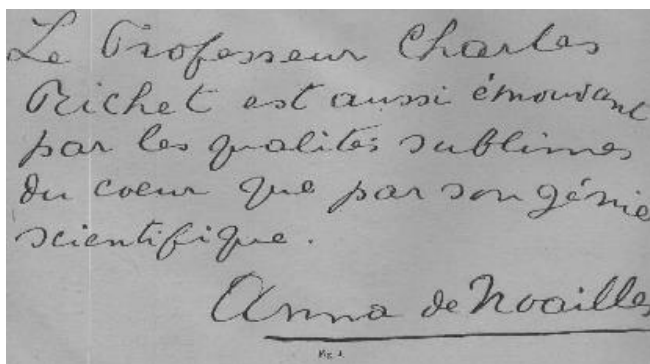 Le Professeur Charles
Richet est aussi émouvant
par les qualités sublimes
du coeur que par son génie
scientifique.
Anna de Noailles